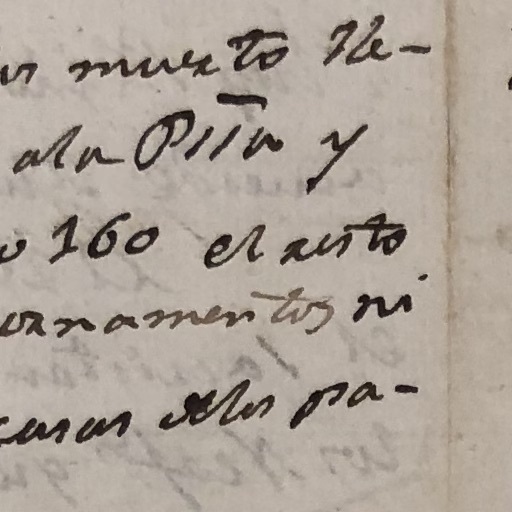 muerto Re-
ala Pīīa y
160 el resto
ornamentos ni
casas delos pa-